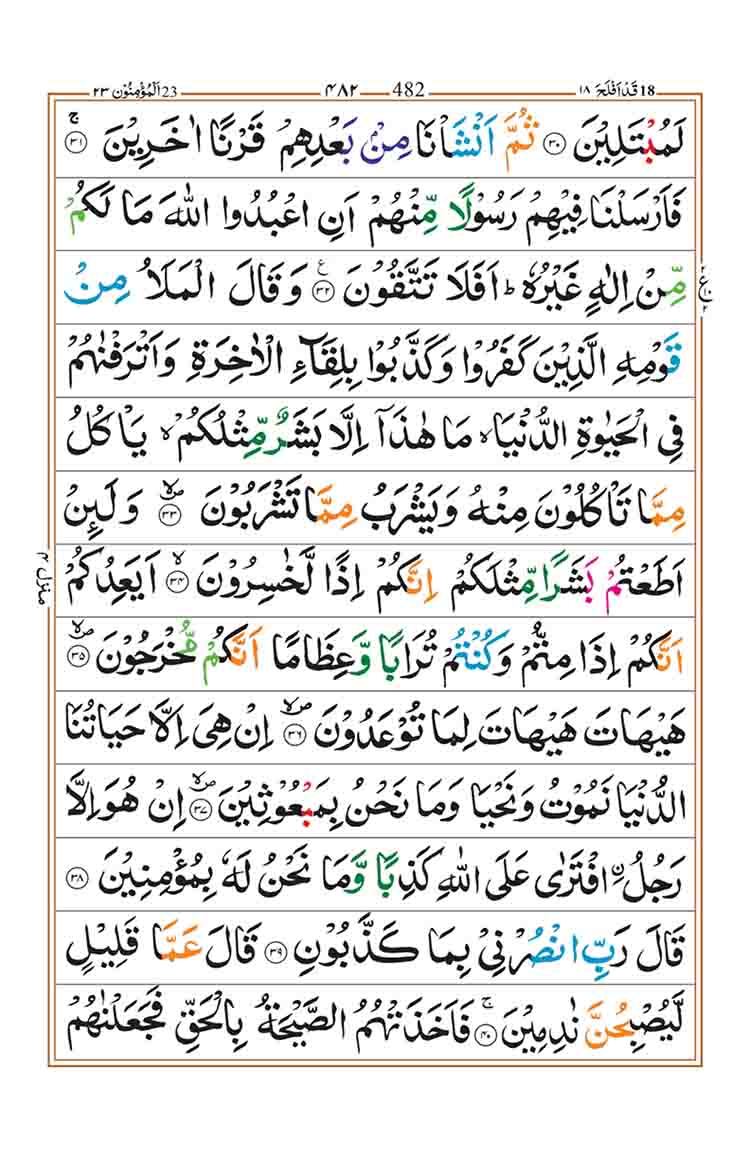 18 قَدْ اَفْلَحَ ١٨ 482 ٤٨٢ 23 اَلْمُؤْمِنُوْن ٢٣
لَمُبْتَلِيْنَ ﴿٣٠﴾ ثُمَّ اَنْشَاْنَا مِنْۢ بَعْدِهِمْ قَرْنًا اٰخَرِيْنَ ۚ ﴿٣١﴾
فَاَرْسَلْنَا فِيْهِمْ رَسُوْلًا مِّنْهُمْ اَنِ اعْبُدُوا اللّٰهَ مَا لَكُمْ
مِّنْ اِلٰهٍ غَيْرُهٗ ؕ اَفَلَا تَتَّقُوْنَ ﴿٣٢﴾ ع وَقَالَ الْمَلَاُ مِنْ
قَوْمِهِ الَّذِيْنَ كَفَرُوْا وَكَذَّبُوْا بِلِقَآءِ الْاٰخِرَةِ وَاَتْرَفْنٰهُمْ
فِي الْحَيٰوةِ الدُّنْيَا ۙ مَا هٰذَآ اِلَّا بَشَرٌ مِّثْلُكُمْ ۙ يَاْكُلُ
مِمَّا تَاْكُلُوْنَ مِنْهُ وَيَشْرَبُ مِمَّا تَشْرَبُوْنَ ۪ۙ ﴿٣٣﴾ وَلَىِٕنْ
اَطَعْتُمْ بَشَرًا مِّثْلَكُمْ اِنَّكُمْ اِذًا لَّخٰسِرُوْنَ ۙ ﴿٣٤﴾ اَيَعِدُكُمْ
اَنَّكُمْ اِذَا مِتُّمْ وَكُنْتُمْ تُرَابًا وَّعِظَامًا اَنَّكُمْ مُّخْرَجُوْنَ ۪ۙ ﴿٣٥﴾
هَيْهَاتَ هَيْهَاتَ لِمَا تُوْعَدُوْنَ ۪ۙ ﴿٣٦﴾ اِنْ هِيَ اِلَّا حَيَاتُنَا
الدُّنْيَا نَمُوْتُ وَنَحْيَا وَمَا نَحْنُ بِمَبْعُوْثِيْنَ ۪ۙ ﴿٣٧﴾ اِنْ هُوَ اِلَّا
رَجُلُ ۨافْتَرٰى عَلَى اللّٰهِ كَذِبًا وَّمَا نَحْنُ لَهٗ بِمُؤْمِنِيْنَ ﴿٣٨﴾
قَالَ رَبِّ انْصُرْنِيْ بِمَا كَذَّبُوْنِ ﴿٣٩﴾ قَالَ عَمَّا قَلِيْلٍ
لَّيُصْبِحُنَّ نٰدِمِيْنَ ۚ ﴿٤٠﴾ فَاَخَذَتْهُمُ الصَّيْحَةُ بِالْحَقِّ فَجَعَلْنٰهُمْ
منزل ٤